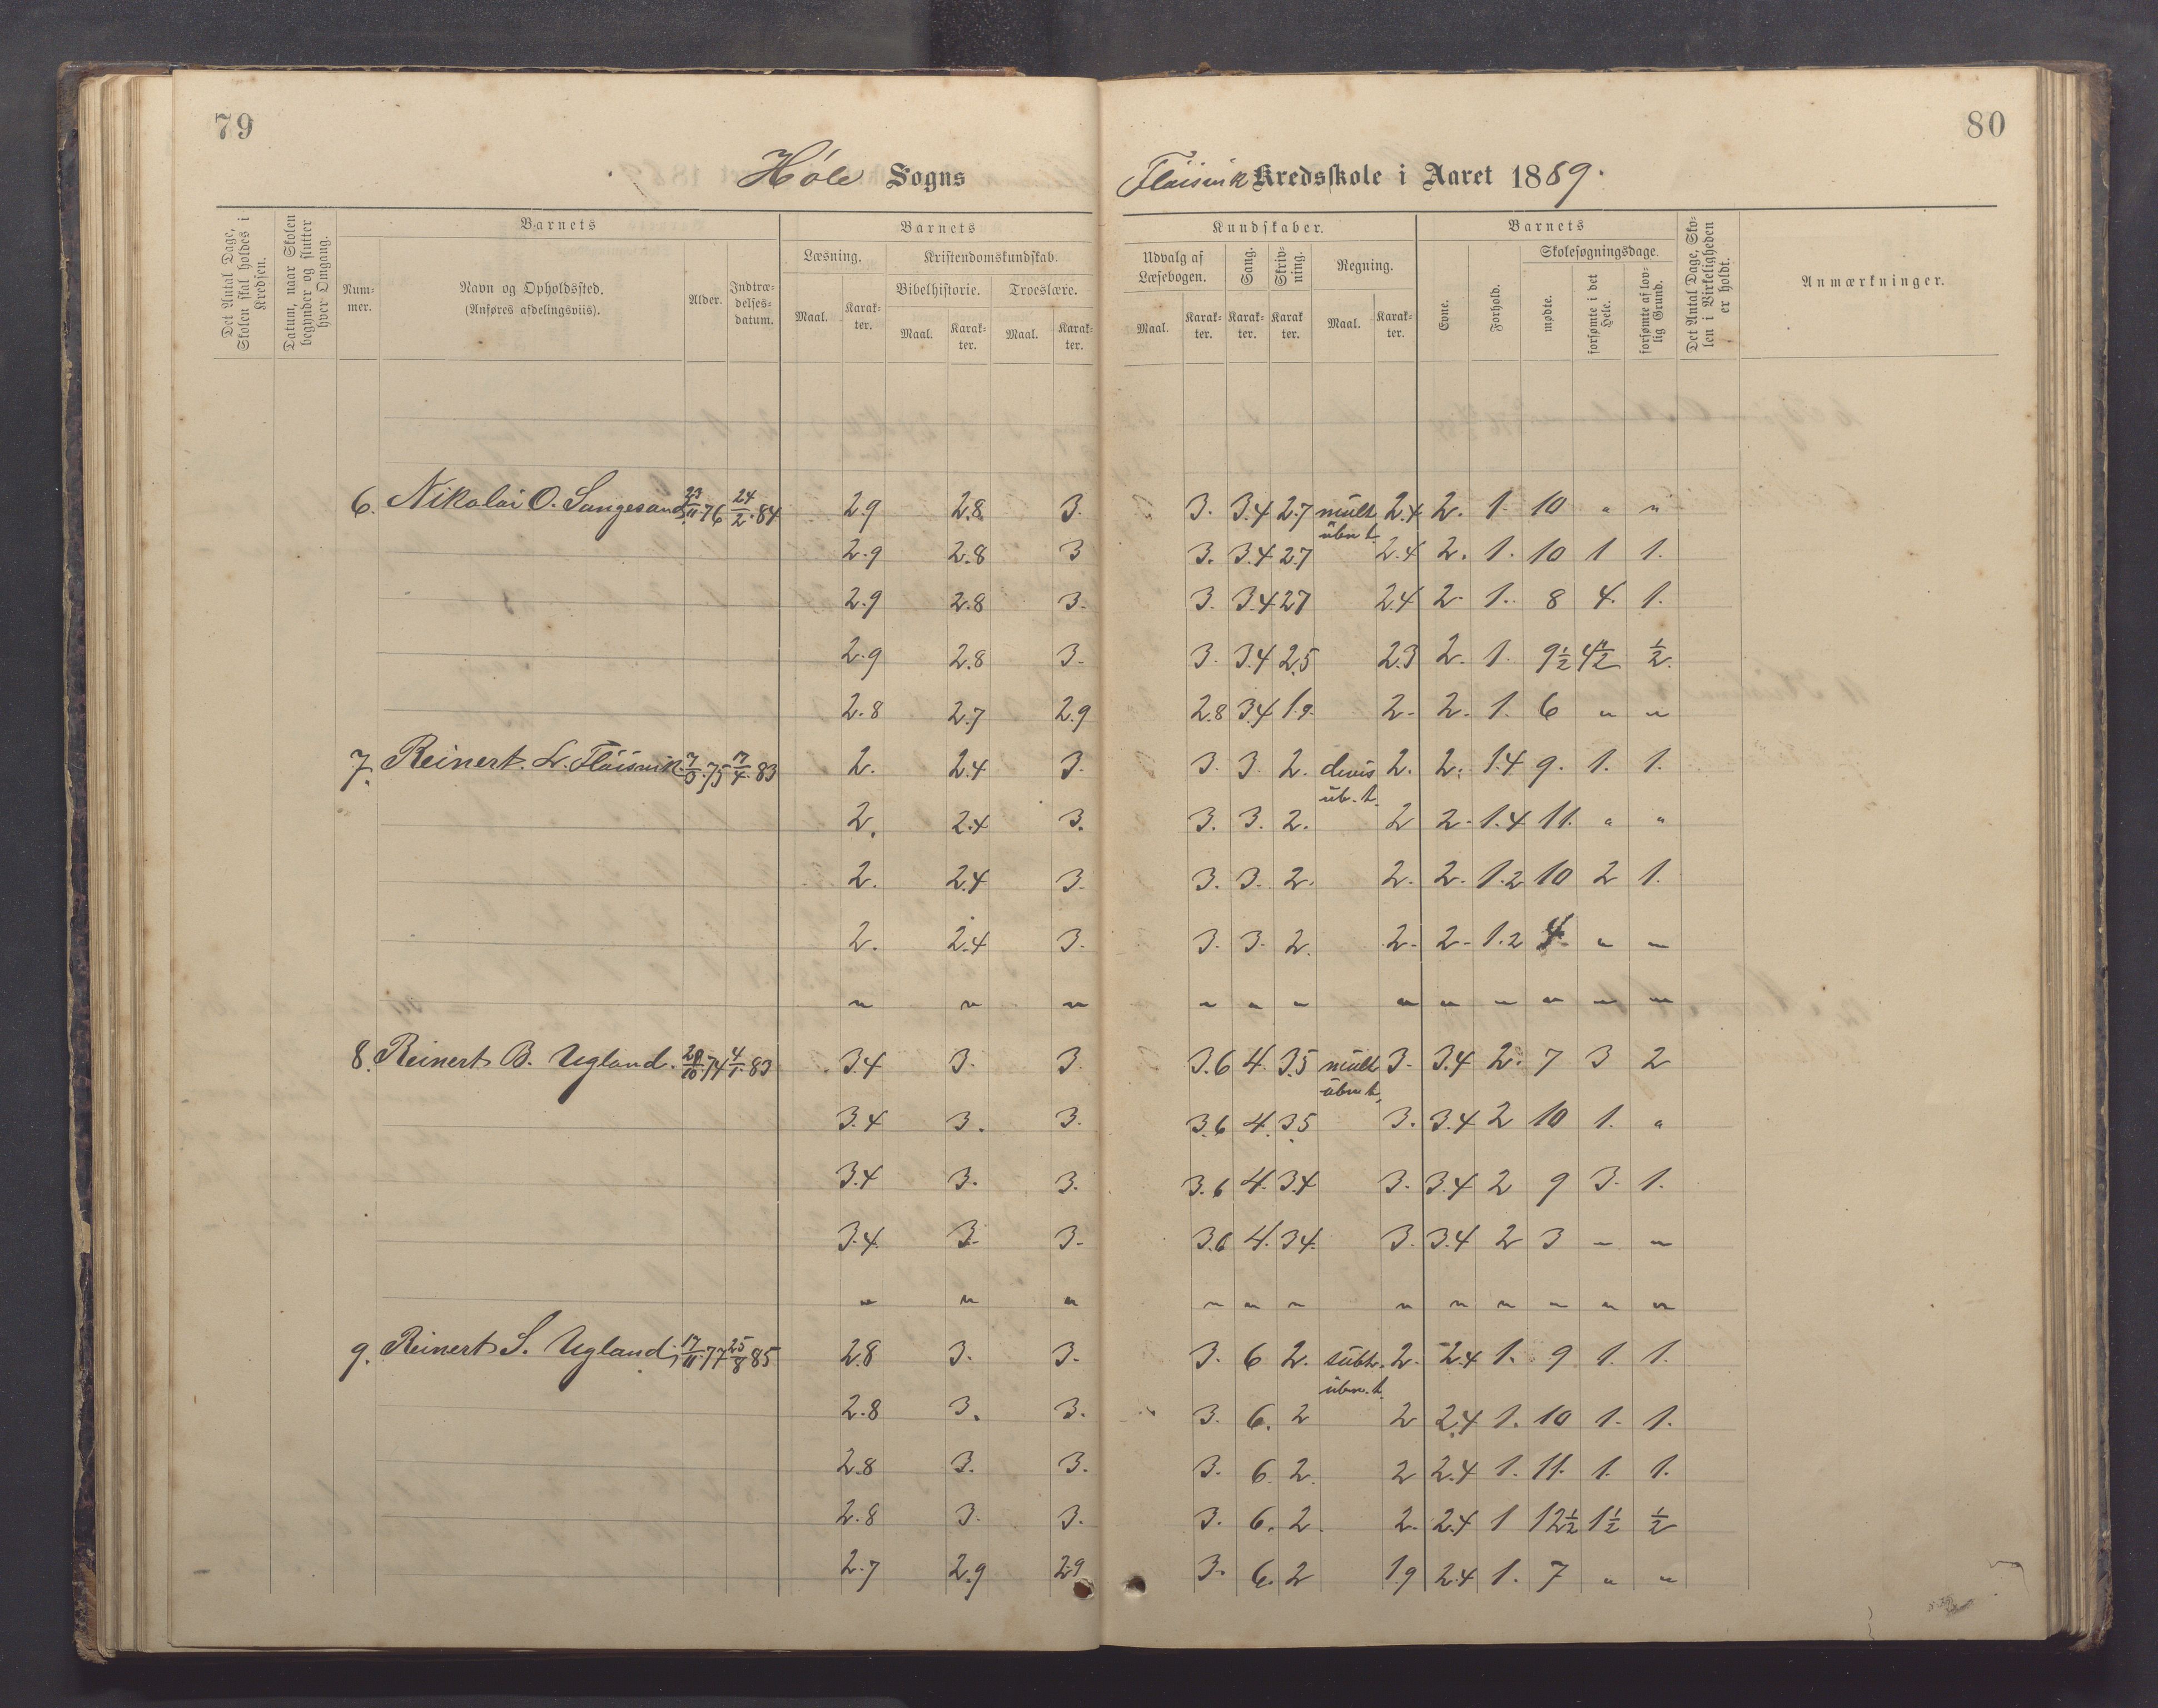 79
80
Höle Sogns
Flöisvik Kredsskole i Aaret 1889.
Det Antal Dage, Skolen skal holdes i Kredsen.
Datum, naar Skolen begynder og slutter hver Omgang.
Barnets
Nummer.
Navn og Opholdssted. (Anføres afdelingsviis).
Alder.
Indtrædelsesdatum.
Barnets
Læsning.
Maal.
Karakter.
Kristendomskundskab.
Bibelhistorie.
Maal.
Karakter.
Troeslære.
Maal.
Karakter.
Kundskaber.
Udvalg af Læsebogen.
Maal.
Karakter.
Sang.
Karakter.
Skrivning.
Karakter.
Regning.
Maal.
Karakter.
Barnets
Evne.
Forhold.
Skolesøgningsdage.
mødte.
forsømte i det Hele.
forsømte af lovlig Grund.
Det Antal Dage, Skolen i Virkeligheden er holdt.
Anmærkninger.
6. Nikolai O. Sangesand 23/11 76 24/2 84 2.9 2.8 3. 3. 3.4 2.7 mült übn t. 2.4 2. 1. 10 " "
2.9 2.8 3 3. 3.4 2.7 2.4 2. 1. 10 1 1.
2.9 2.8 3. 3. 3.4 2.7 2.4 2. 1. 8 4. 1.
2.9 2.8 3. 3. 3.4 2.5 2.3 2. 1. 9½ 4½ ½
2.8 2.7 2.9 2.8 3.4 1.9 2. 2. 1. 6 " "
7. Reinert L. Flöisvik 75 7/4 83 2. 2.4 3. 3. 3. 2. divis üb. t. 2. 2. 1.4 9. 1. 1.
2. 2.4 3. 3. 3. 2. 2 2. 1.4 11. " "
2. 2.4 3. 3. 3. 2. 2. 2. 1.2 10 2 1.
2. 2.4 3. 3. 3. 2. 2. 2. 1.2 4 " "
" " " " " " " " " " " "
8. Reinert B. Ugland. 10 74 4/1 83 3.4 3. 3. 3.6 4. 3.5 mült übn t. 3. 3.4 2. 7 3 2
3.4 3. 3. 3.6 4. 3.5 3. 3.4 2 10 1. "
3.4 3. 3. 3.6 4. 3.4 3. 3.4 2 9 3. 1.
3.4 3. 3. 3.6 4. 3.4. 3. 3.4 2 3 " "
" " " " " " " " " " " "
9. Reinert S. Ugland 17/11 77 25/8 85 2.8 3. 3. 3. 6 2. sübt. übn. t. 2. 2.4 1. 9 1. 1.
2.8 3. 3. 3. 6. 2 2 2.4 1. 10 1. 1.
2.8 3. 3. 3. 6. 2. 2 2.4 1. 11. 1. 1.
2.8 3. 3. 3. 6. 2. 2. 2.4 1 12½ 1½ ½
2.7 2.9 2.9 3. 6. 2 1.9 2.4 1. 7 " "